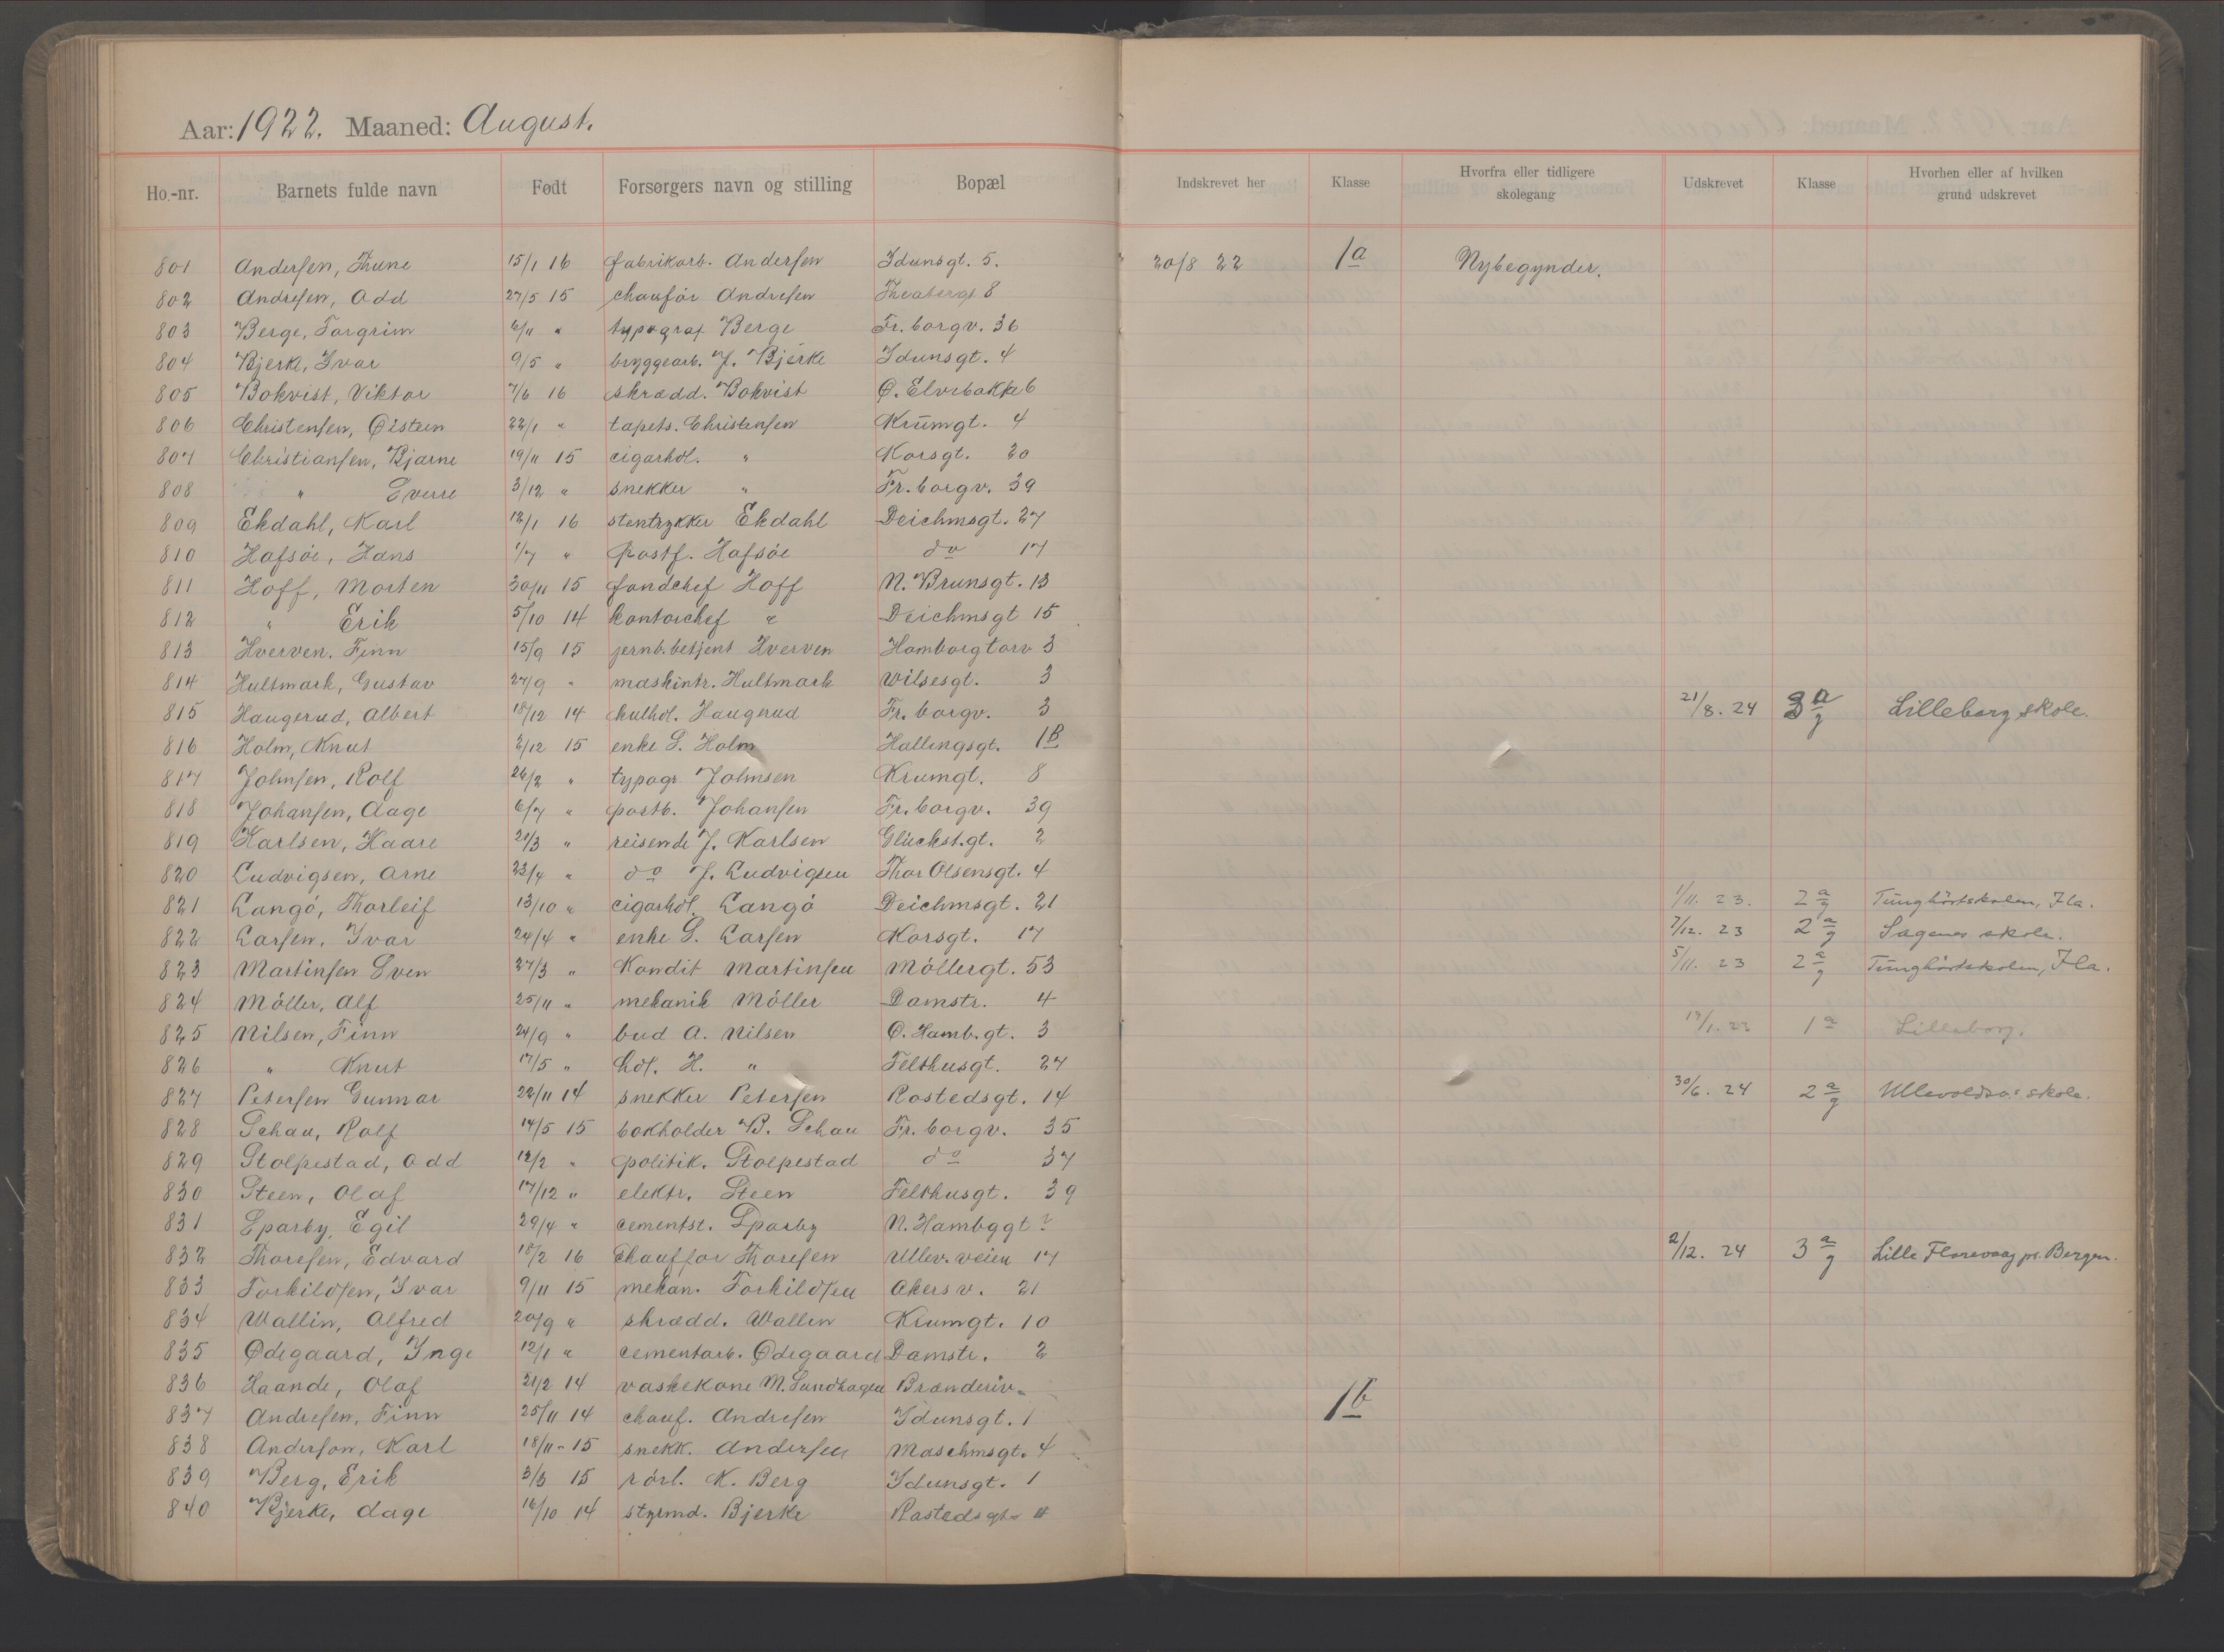 Aar: 1922. Maaned: August.
Ho.-nr. Barnets fulde navn Født Forsørgers navn og stilling Bopæl Indskrevet her Klasse Hvorfra eller tidligere skolegang Udskrevet Klasse Hvorhen eller af hvilken grund udskrevet
801 Andersen, Thune 15/1 16 fabrikarb. Andersen Idunsgt. 5. 20/8 22 1a Nybegynder.
802 Andresen, Odd 27/5 15 chaufør Andresen 8
803 Berge, Torgrim 6/11 " typograf Berge Fr. borgv. 36
804 Bjerke, Ivar 9/5 " bryggearb. J. Bjerke Idunsgt. 4
805 Bokvist, Viktor 7/6 16 skrædd. Bokvist Ø. Elvebakke 6
806 Christensen, Øistein 22/1 " tapets. Christensen Krumgt. 4
807 Christiansen, Bjarne 19/11 15 cigarhdl. " Korsgt. 20
808 " Sverre 3/12 " snekker " Fr. borgv. 39
809 Ekdahl, Karl 12/1 16 stentrykker Ekdahl Deichmsgt. 27
810 Hafsöe, Hans 1/7 " postf. Hafsöe do 17
811 Hoff, Morten 30/11 15 fondchef Hoff N. Brunsgt. 13
812 " Erik 5/10 14 kontorchef " Deichmsgt 15
813 Hverven. Finn 15/9 15 jernb.betjent Hverven Hamborgtorv 3
814 Hultmark, Gustav 27/9 " maskintr. Hultmark Wilsesgt. 3
815 Haugerud, Albert 18/12 14 kulhdl. Haugerud Fr. borgv. 3 21/8. 24 3 a/g Lilleborg skole.
816 Holm, Knut 2/12 15 enke S. Holm Hallingsgt. 1B
817 Johnsen, Rolf 26/2 " typogr. Johnsen Krumgt. 8
818 Johansen, Aage 6/7 " postb. Johansen Fr. borgv. 39
819 Karlsen, Haare 21/3 " reisende J. Karlsen Glückst.gt. 2
820 Ludvigsen, Arne 23/4 " do J. Ludvigsen Thor Olsensgt. 4
821 Langö, Thorleif 13/10 " cigarhdl. Langö Deichmsgt. 21 1/11. 23. 2 a/g Tunghörtskolen, Ila.
822 Larsen, Ivar 24/4 " enke S. Larsen Korsgt. 17 7/12. 23 2 a/g Sagenes skole.
823 Martinsen Sven 27/3 " Kondit Martinsen Möllergt. 53 5/11. 23 2 a/g Tunghördtskolen, Ila.
824 Möller, Alf 25/11 " mekanik Möller Damstr. 4
825 Nilsen, Finn 24/9 " bud A. Nilsen Ø. Hamb.gt. 3 1a Lilleborg.
826 " Knut 17/5 " hdl. H. " Felthusgt. 27
827 Petersen Gunnar 22/11 14 snekker Petersen Rostedsgt. 14 30/6. 24 2 a/g Ullevoldsv. skole.
828 Schau, Rolf 14/5 15 bokholder B. Schau Fr. borgv. 35
829 Stolpestad, Odd 12/2 " politik. Stolpestad do 37
830 Steen, Olaf 17/12 " elektr. Steen Felthusgt. 39
831 Sparby, Egil 29/4 " cementst. Sparby N. Hambggt ?
832 Thoresen, Edvard 18/2 16 Chauffør Thoresen Ullev. veien 17 2/12. 24 3 a/g Lille Florevaag pr. Bergen.
833 Torkildsen, Ivar 9/11 15 mekan. Torkildsen Akersv. 21
834 Wallin, Alfred 20/9 " skrædd. Wallin Krumgt. 10
835 Ødegaard, Inge 12/1 " cementarb. Ødegaard Damstr. 2
836 Haande, Olaf 21/2 14 vaskekone M. Sundhagen Brænderiv. 1b
837 Andresen, Finn 25/11 14 chauf. Andresen Idunsgt. 1
838 Anderson, Karl 18/11 - 15 snekk. Andersen Maschmsgt. 4
839 Berg, Erik 3/3 15 rörl. K. Berg Idunsgt. 1
840 Bjerke, Aage 16/10 14 styrmd. Bjerke Rostedsgt. 11